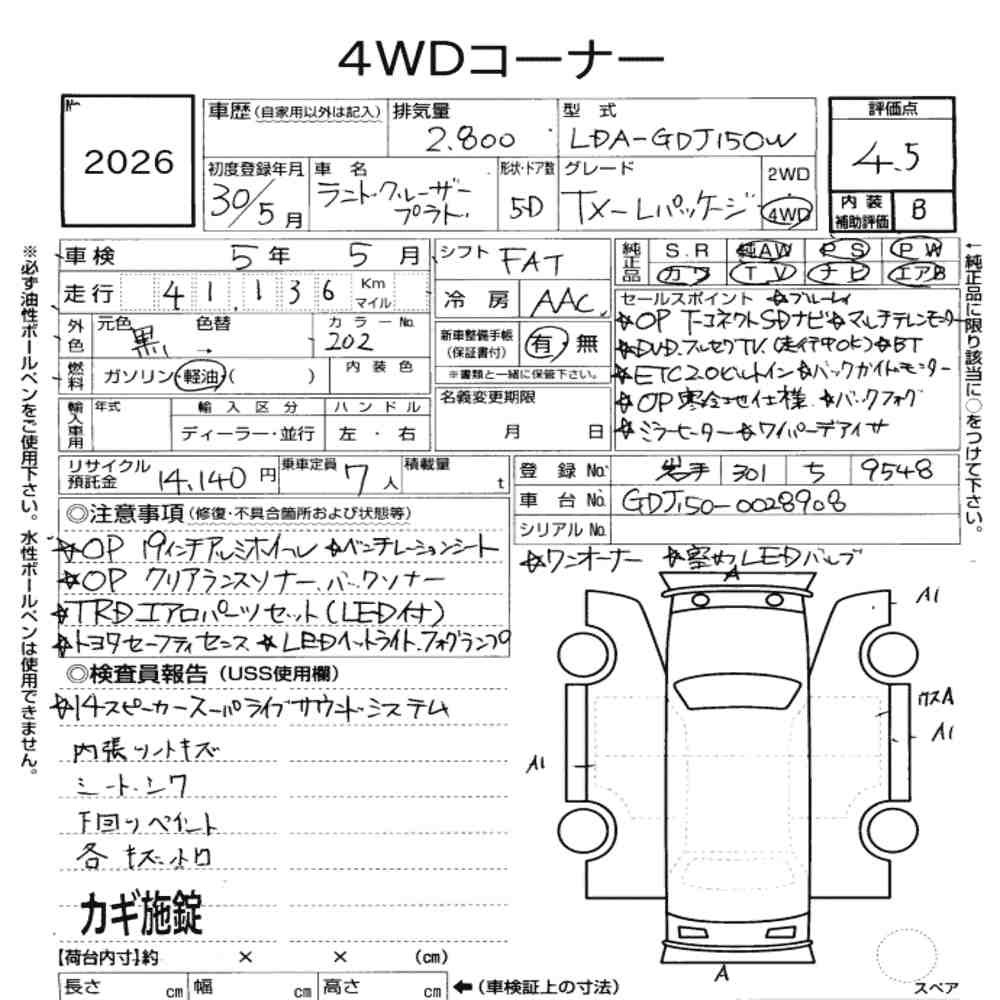 4WDコーナー
No.
2026
車歴(自家用以外は記入)
排気量
2.800
型式
LDA-GDJ150W
評価点
4.5
初度登録年月
30/5月
車名
ランドクルーザー
プラド
形状・ドア数
5D
グレード
TX-Lパッケージ
2WD
4WD
内装
補助評価
B
車検 5年 5月
シフト FAT
純正品
S.R 純AW PS PW
カワ TV ナビ エアB
走行 41,136 Km
マイル
冷房 AAC
セールスポイント ☆ブルーレイ
☆OP T-コネクトSDナビ☆マルチテレンモニター
☆DVD.フルセグTV.(走行中OK)☆BT
☆ETC2.0ビルトイン☆バックガイドモニター
☆OP 寒冷地仕様 ☆バックフォグ
☆ミラーヒーター☆ワイパーデアイサ
外色
元色 黒
色替 →
カラーNo. 202
新車整備手帳
(保証書付)
有・無
※書類と一緒に保管下さい。
燃料
ガソリン・軽油( )
内装色
名義変更期限
月 日
輸入車用
年式
輸入区分
ハンドル
ディーラー・並行
左・右
リサイクル
預託金
14,140円
乗車定員 7人
積載量
t
登録No. 岩手 301 ち 9548
車台No. GDJ150-0028908
シリアルNo.
◎注意事項(修復・不具合箇所および状態等)
☆OP 19インチアルミホイール ☆ベンチレーションシート
☆OP クリアランスソナー.バックソナー
☆TRDエアロパーツセット(LED付)
☆トヨタセーフティセンス ☆LEDヘッドライト.フォグランプ
☆ワンオーナー ☆窓めLEDバルブ
◎検査員報告(USS使用欄)
☆14スピーカースーパーライブサウンドシステム
内張りットキズ
シート.シワ
下回りペイント
各キズ.凹
カギ施錠
A
A1
ワスA
A1
A1
A
【荷台内寸】約 × × (cm)
長さ cm 幅 cm 高さ cm
←(車検証上の寸法)
スペア
※必ず油性ボールペンをご使用下さい。水性ボールペンは使用できません。
←純正品に限り該当に○をつけて下さい。